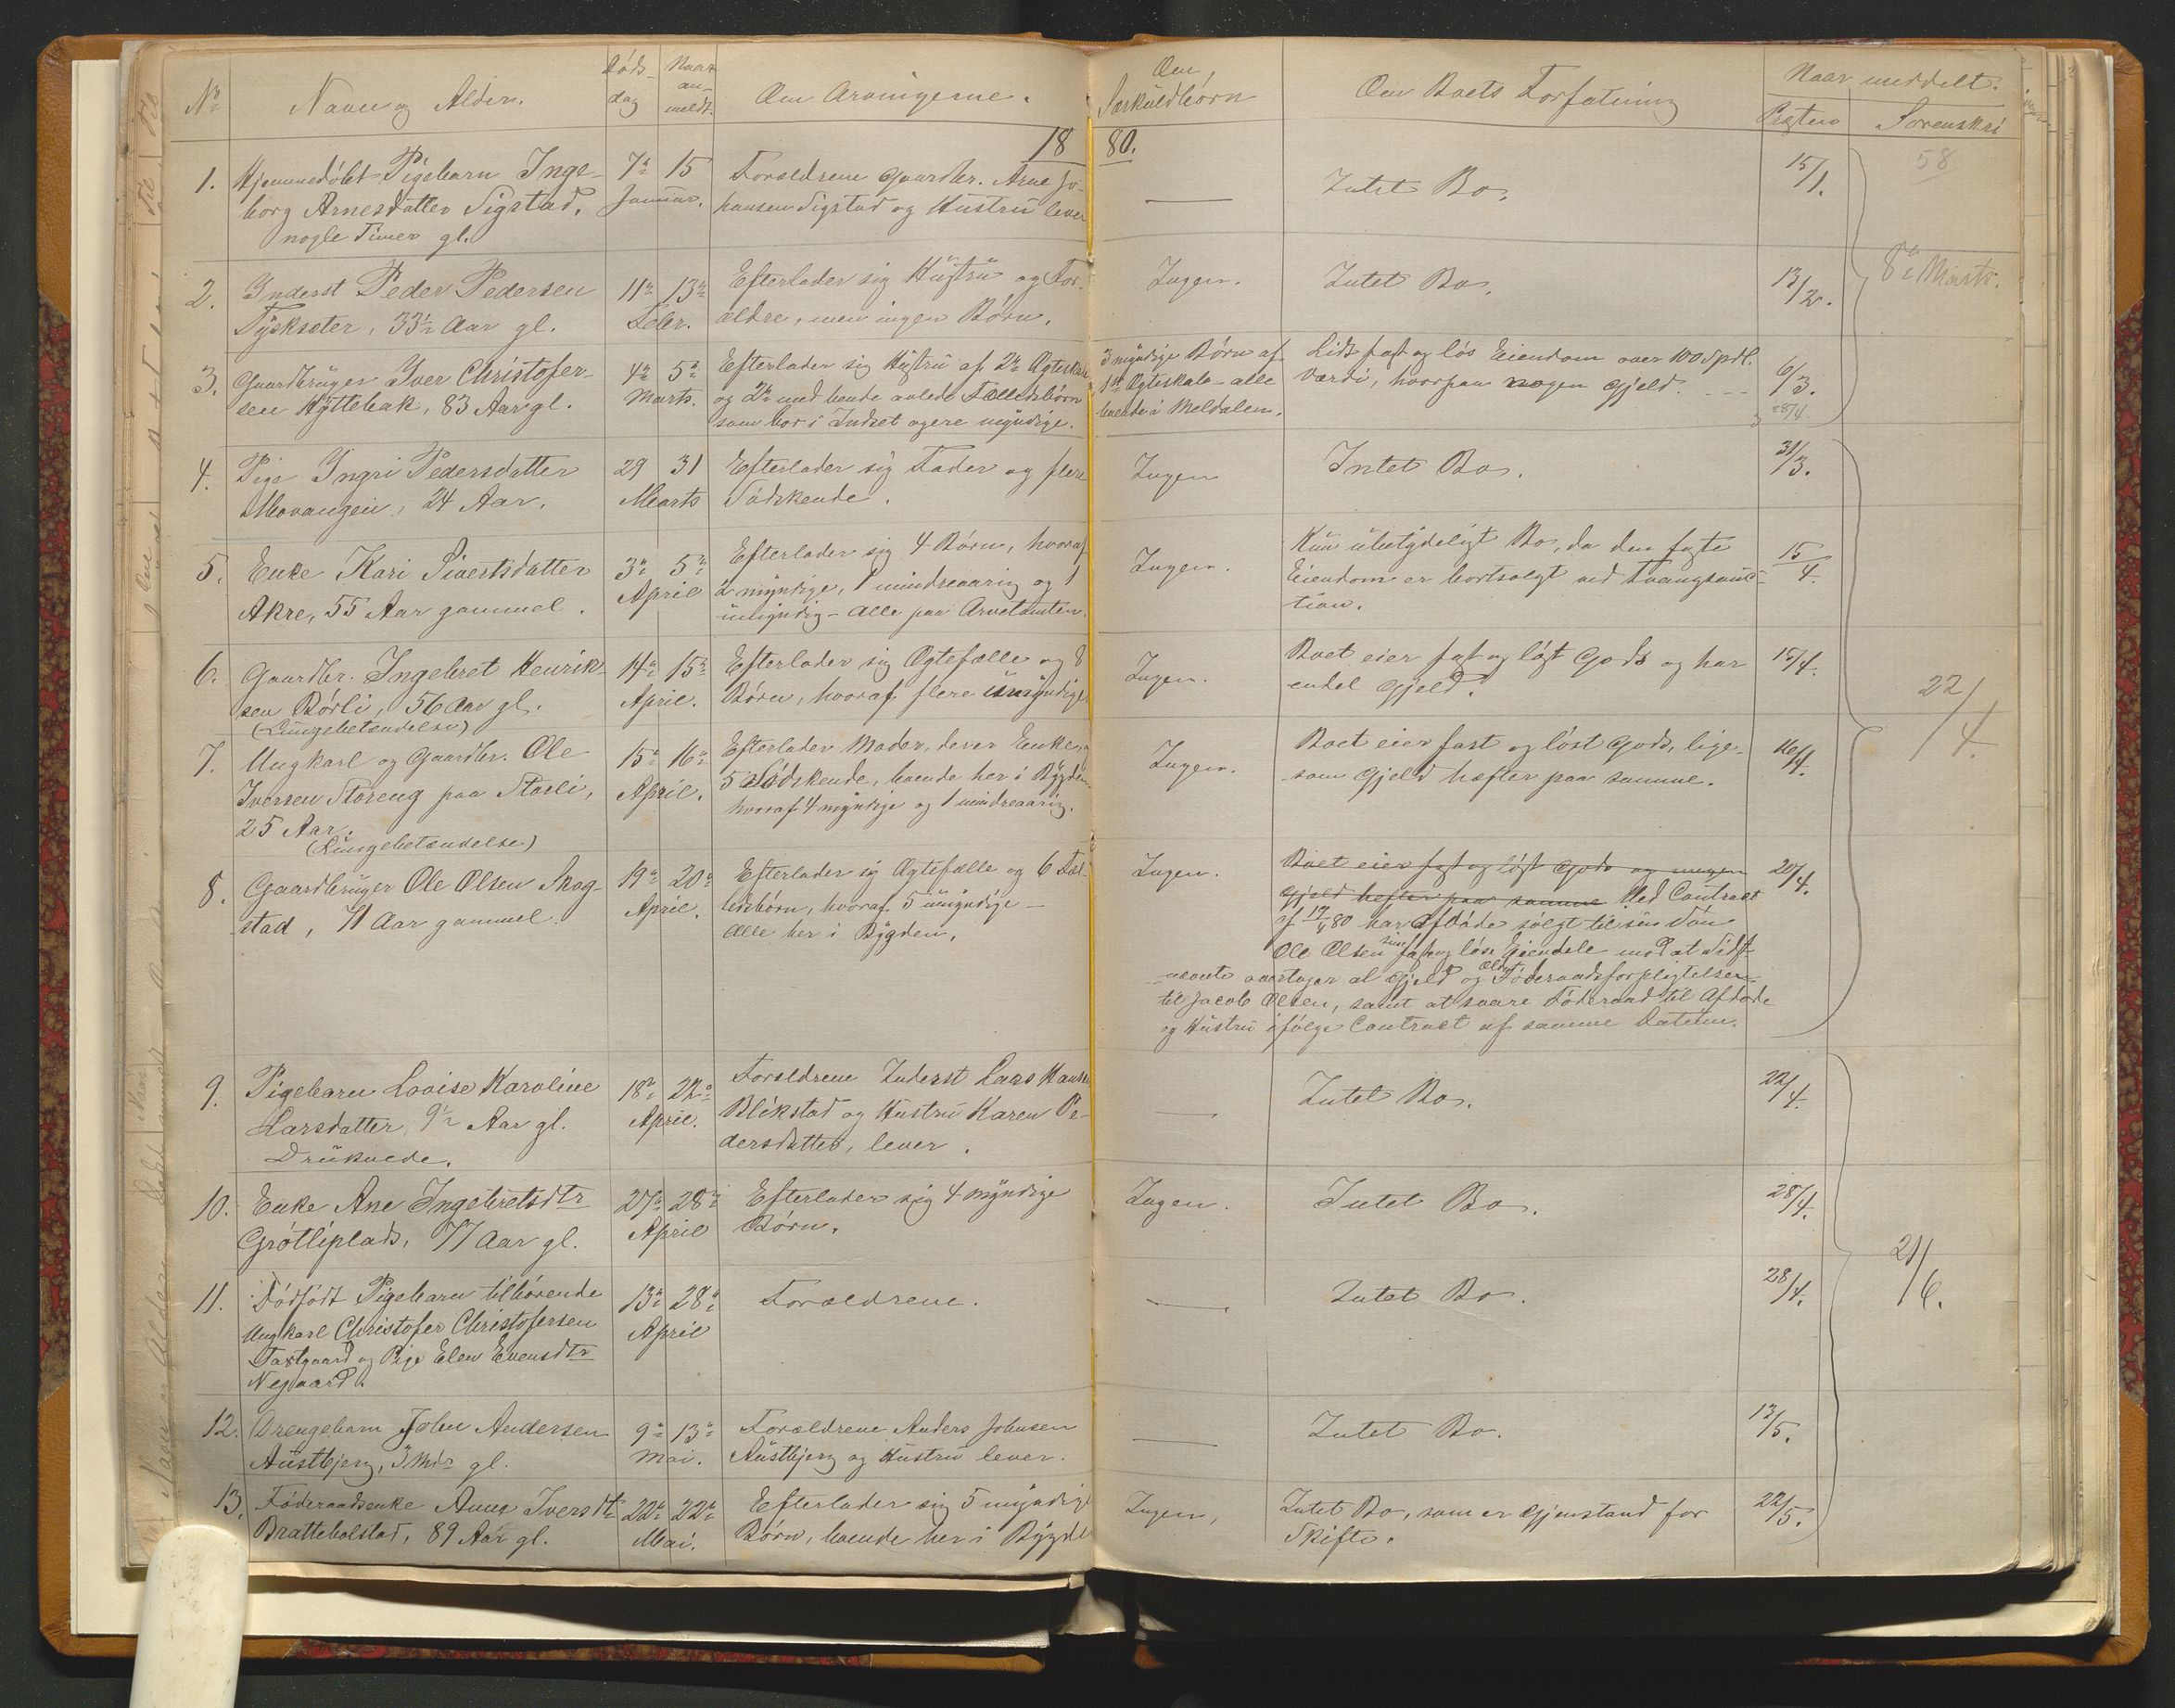 No Navn og Alder. Døds- dag Naar an- meldt. Om Arvingerne. Om Særkuldbørn Om Boets Forfatning Naar meddelt.
Præsten Sorenskri
1880.
1. Hjemmedøbt Pigebarn Inge- 7de 15 Forældrene Gaardbr. Arne Jo- — Intet Bo. 15/1. 58
borg Arnesdatter Sigstad, Januar. hansen Sigstad og Hustru lever
nogle Timer gl.
2. Inderst Peder Pedersen 11te 13de Efterlader sig Hustru og For- Ingen. Intet Bo. 13/2. 8de Marts.
Tyskseter, 33½ Aar gl. Febr. ældre, men ingen Børn.
3. Gaardbruger Iver Christofer- 4de 5te Efterlader sig Hustru af 2det Ægteskab 3 myndige Børn af Lidt fast og løs Eiendom over 100 Spdl. 6/3.
sen Hyttebak, 83 Aar gl. Marts. og 2de med hende avlede Fællesbørn 1ste Ægteskab - alle Værdi, hvorpaa nogen Gjeld. 28/4
som bor i Indset og ere myndige. boende i Meldalen.
4. Pige Ingri Pedersdatter 29 31 Efterlader sig Fader og flere Ingen Intet Bo. 31/3.
Movangen, 24 Aar. Marts Sødskende.
5. Enke Kari Sivertsdatter 3de 5te Efterlader sig 4 Børn, hvoraf Ingen. Kun ubetydeligt Bo, da den faste 15/4.
Akre, 55 Aar gammel. April 2 myndige, 1 mindreaarig og 1 Eiendom er bortsolgt ved Tvangsauc-
umyndig - alle paa Arvetomten. tion.
6. Gaardbr. Ingebret Henrik- 14de 15de Efterlader sig Ægtefælle og 8 Ingen. Boet eier fast og løst Gods og har 15/4. 22/4.
sen Børli, 56 Aar gl. April. Børn, hvoraf flere umyndige endel Gjeld.
(Lungebetændelse)
7. Ungkarl og Gaardbr. Ole 15de 16de Efterlader Moder, der er Enke, Ingen. Boet eier fast og løst Gods, lige- 16/4.
Iversen Storeng paa Storli, April. 5 Sødskende, boende her i Bygden, som Gjeld hefter paa samme.
25 Aar. hvoraf 4 myndige og 1 mindreaarig.
(Lungebetændelse)
8. Gaardbruger Ole Olsen Skog- 19de 20de Efterlader sig Ægtefælle og 6 Fæl- Ingen. Boet eier fast og løst Gods og megen 20/4.
stad, 71 Aar gammel. April. lesbørn, hvoraf 5 umyndige - Gjeld hefter paa samme Ved Contract
Alle her i Bygden. af 80 har Afdøde solgt til sin Søn
Ole Olsen sin fast og løse Eiendele mod at Sidst-
nævnte overtager al Gjeld og Ældre Føderaadsforpligtelser
til Jacob Olsen, samt at svare Føderaad til Afdøde
og Hustru ifølge Contract af samme Datum.
9. Pigebarn Lovise Karoline 18de 22de Forældrene Inderst Lars Hansen — Intet Bo. 22/4.
Larsdatter, 9½ Aar gl. April. Blikstad og Hustru Karen Pe-
Druknede. dersdatter, lever.
10. Enke Ane Ingebretsdtr 27de 28de Efterlader sig 4 myndige Ingen. Intet Bo. 28/4.
Grøtliplads, 77 Aar gl. April Børn.
11. Dødfødt Pigebarn tilhørende 13de 28de Forældrene. — Intet Bo. 28/4. 21/6.
Ungkarl Christofer Christofersen April
Tostgaard og Pige Elen Evensdtr
Negaard.
12. Drengebarn John Andersen 9de 13de Forældrene Anders Johnsen — Intet Bo. 13/5.
Austbjerg, 3 Mdr gl. Mai. Austbjerg og Hustru lever.
13. Føderaadsenke Anne Iversdtr 22de 22de Efterlader sig 5 myndige Ingen, Intet Bo, som er Gjenstand for 22/5.
Brattebolstad, 89 Aar gl. Mai. Børn, boende her i Bygden Skifte.